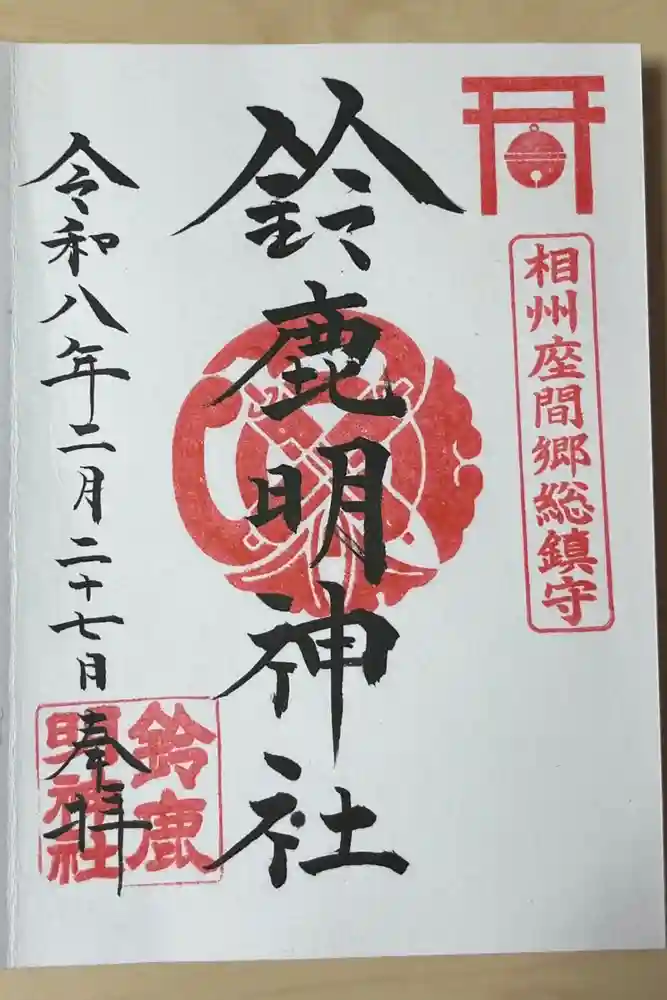 相州座間郷総鎮守
鈴鹿明神社
令和八年二月二十七日
奉拝
鈴鹿
明神社